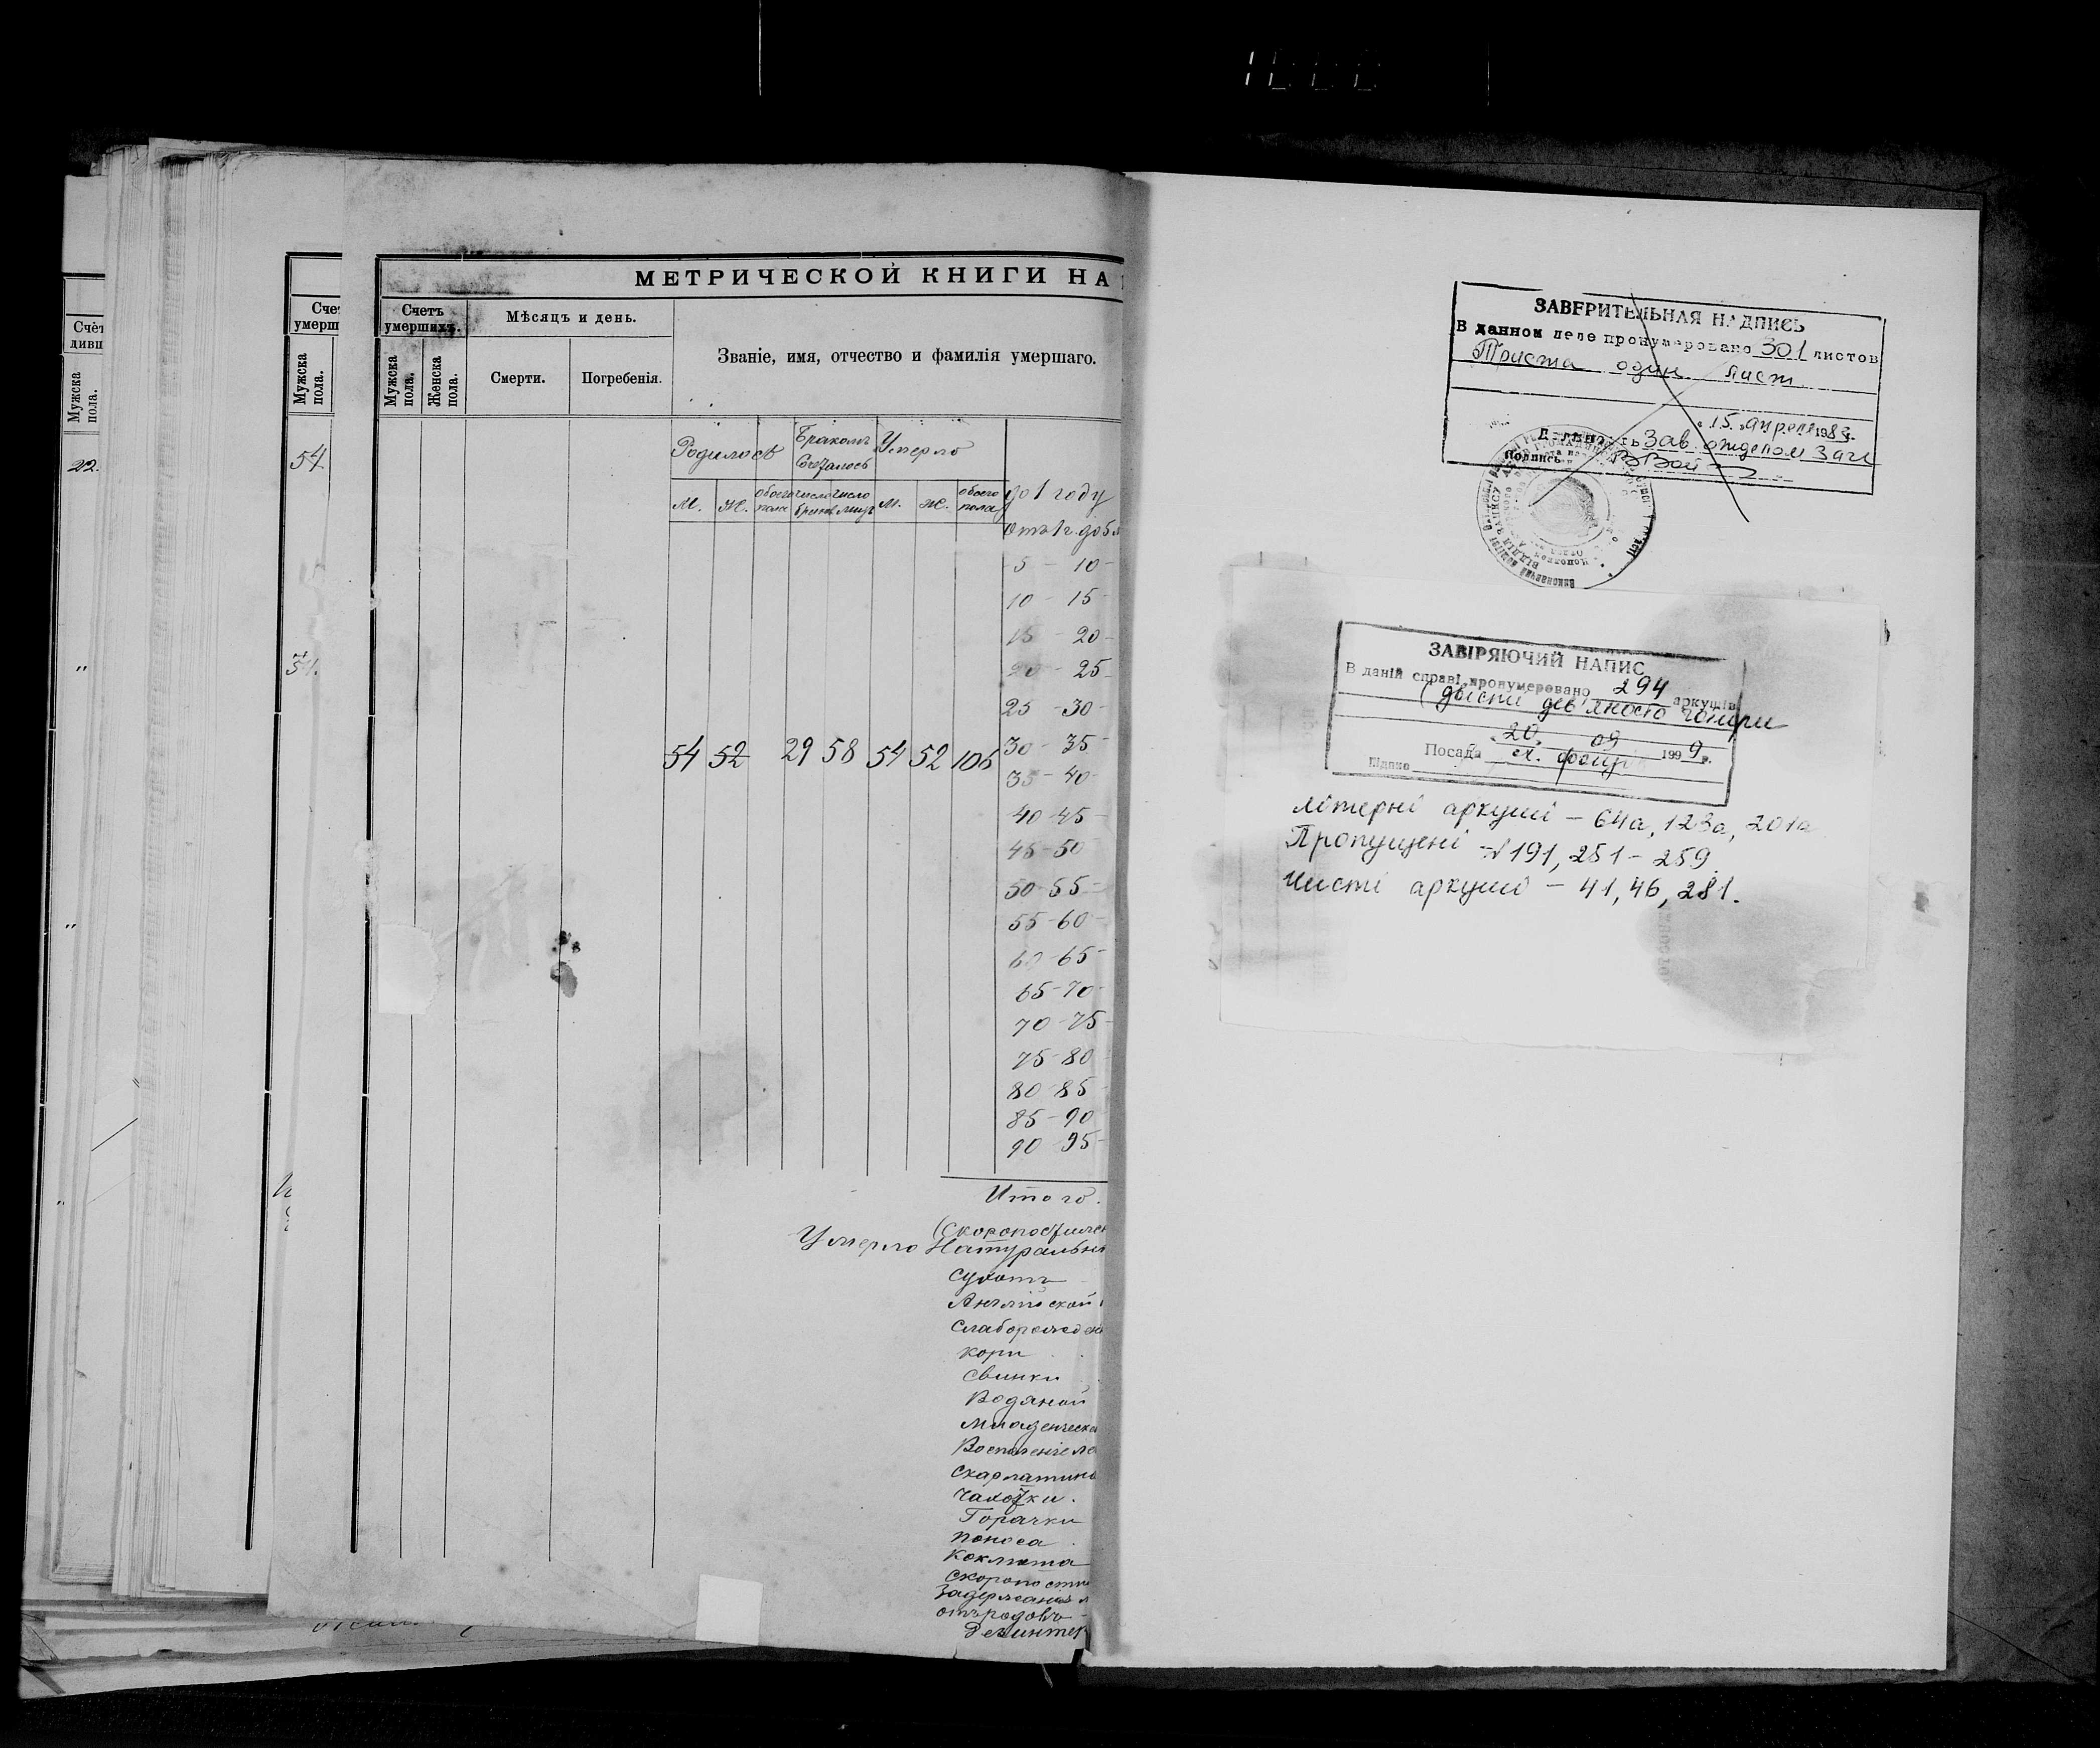 МЕТРИЧЕСКОЙ КНИГИ НА
Счетъ умершихъ.
Мѣсяцъ и день.
Званіе, имя, отчество и фамилія умершаго.
Мужска пола.
Женска пола.
Смерти.
Погребенія.
Счет
умерш
Мужска пола.
54
54.
Счет
дивш
Мужска пола.
22.
"
"
"
Родилось
Бракомъ Сочеталось
Умерло
М.
Ж.
обоего пола
число браков
число лицъ
М.
Ж.
обоего пола
до 1 году
Отъ 1 г. до 5 л
5 - 10 -
10 - 15 -
15 - 20 -
20 - 25 -
25 - 30 -
54 52 29 58 54 52 106
30 - 35 -
35 - 40 -
40 - 45 -
45 - 50
50 - 55 -
55 - 60 -
60 - 65 -
65 - 70 -
70 - 75 -
75 - 80
80 - 85 -
85 - 90
90 - 95 -
Итого.
Умерло
(Скоропостижн
Натуральн
Сухотъ
Англійской
Слаборожден
Кори
Свинки
Водяной
Младенческ
Воспаленіе ле
Скарлатины
Чахотки.
Горячки
Поноса
Коклюша
Скоропости
Задержанія м
отъ родовъ -
Дезинтер
ЗАВЕРИТЕЛЬНАЯ НАДПИСЬ
В данном деле пронумеровано 301 листов
Триста один лист
"15" апреля 1983 г.
Должность Зав. отделом загс
Подпись
ЗАВІРЯЮЧИЙ НАПИС
В даній справі пронумеровано 294 аркушів
(двісті дев'яносто чотири
20. 09 1999 р.
Посада
Підпис
Літерні аркуші - 64а, 123а, 201а
Пропущені - № 191, 251 - 259.
Чисті аркуші - 41, 46, 281.